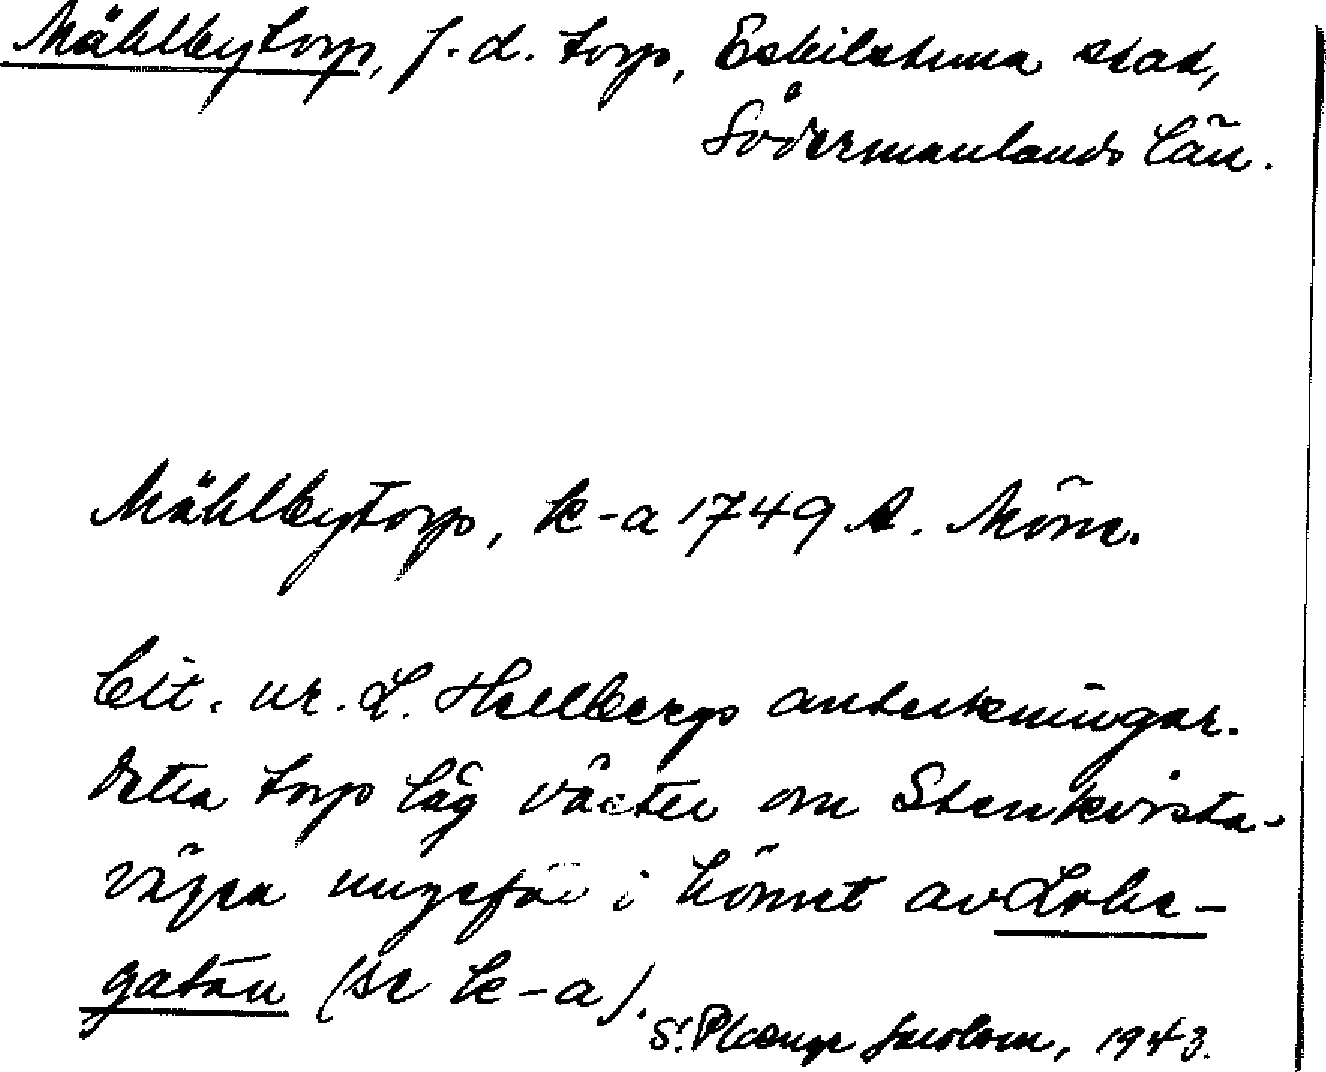 Mählbytorp, f.d. torp, Eskilstuna stad,
Södermanlands län.
Mählbytorp, k-a 1749 A. Mörn.
Cit. ur. L. Hellbergs anteckningar.
Detta torp låg väster om Stenkvista-
vägen ungefär i hörnet av Lohe-
gatan (se k-a).
S. 1943.